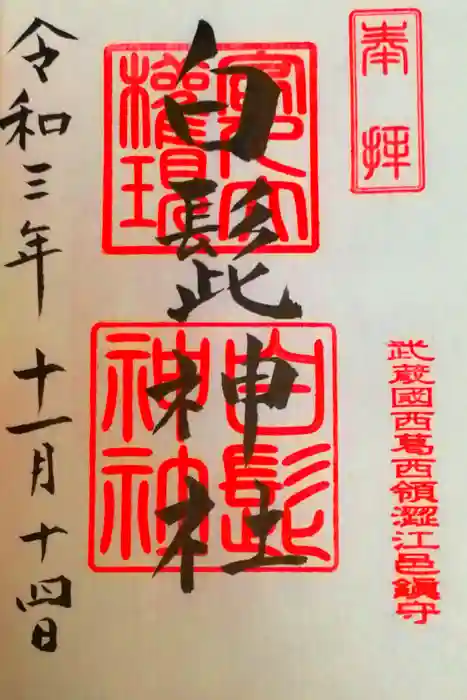 奉拝
武蔵國西葛西領澀江邑鎮守
白髭神社
白髭神社
令和三年十一月十四日